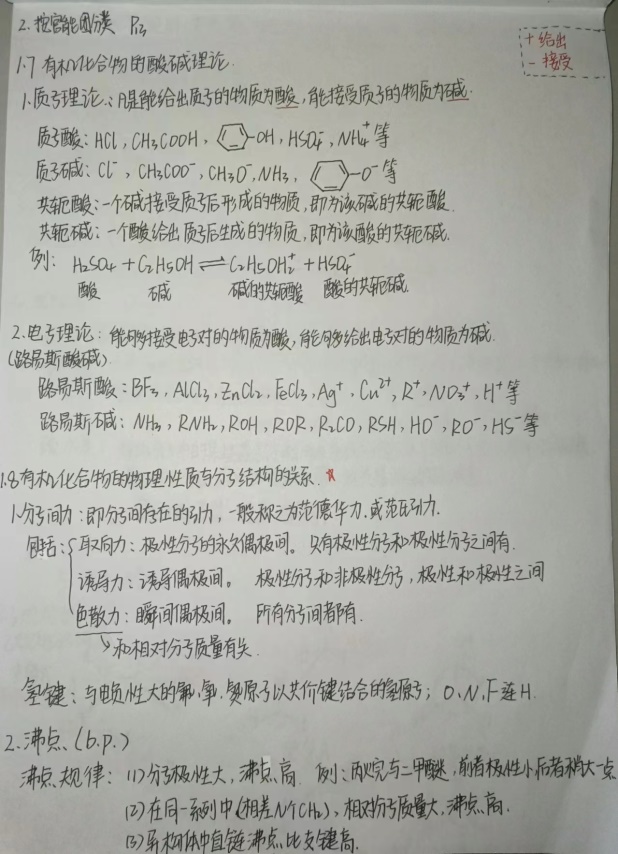 2.按官能团分类 P13
+给出
-接受
1.7 有机化合物的酸碱理论.
1.质子理论:凡是能给出质子的物质为酸,能接受质子的物质为碱.
质子酸:HCl, CH3COOH, -OH, HSO4-, NH4+等
质子碱:Cl-, CH3COO-, CH3O-, NH3, -O-等
共轭酸:一个碱接受质子后形成的物质,即为该碱的共轭酸.
共轭碱:一个酸给出质子后生成的物质,即为该酸的共轭碱.
例: H2SO4 + C2H5OH ⇌ C2H5OH2+ + HSO4-
酸 碱 碱的共轭酸 酸的共轭碱.
2.电子理论:能够接受电子对的物质为酸,能够给出电子对的物质为碱.
(路易斯酸碱)
路易斯酸:BF3, AlCl3, ZnCl2, FeCl3, Ag+, Cu2+, R+, NO3+, H+等
路易斯碱:NH3, RNH2, ROH, ROR, R2CO, RSH, HO-, RO-, HS-等
1.8有机化合物的物理性质与分子结构的关系.
1.分子间力:即分子间存在的引力,一般称之为范德华力.或范氏引力.
包括:取向力:极性分子的永久偶极间。只有极性分子和极性分子之间有.
诱导力:诱导偶极间。 极性分子和非极性分子,极性和极性之间
色散力:瞬间偶极间。 所有分子间都有.
和相对分子质量有关.
氢键:与电负性大的氟,氧,氮原子以共价键结合的氢原子; O、N、F连H.
2.沸点、(b.p.)
沸点规律:(1)分子极性大,沸点高. 例:丙烷与二甲醚,前者极性小后者稍大一点
(2)在同一系列中(相差N个CH2),相对分子质量大,沸点高.
(3)异构体中直链沸点比支链高.